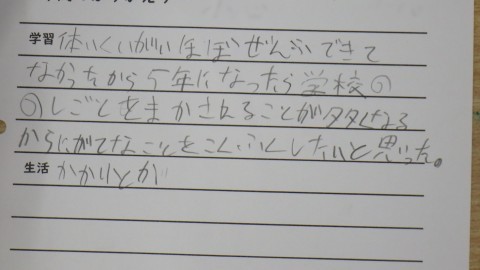 学習 体いくいがいほぼぜんぶできて
なかったから5年になったら学校の
のしごとをまかされることが多くなる
からにがてなことをこくふくしたいと思った。
生活 かかりとか